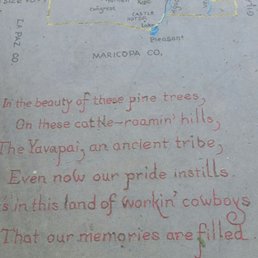 CASTLE
HOT SP
Lake
Pleasant
Congress
LA PAZ CO
MARICOPA CO.
In the beauty of these pine trees,
On these cattle-roamin' hills,
The Yavapai, an ancient tribe,
Even now our pride instills.
's in this land of workin' cowboys
That our memories are filled.